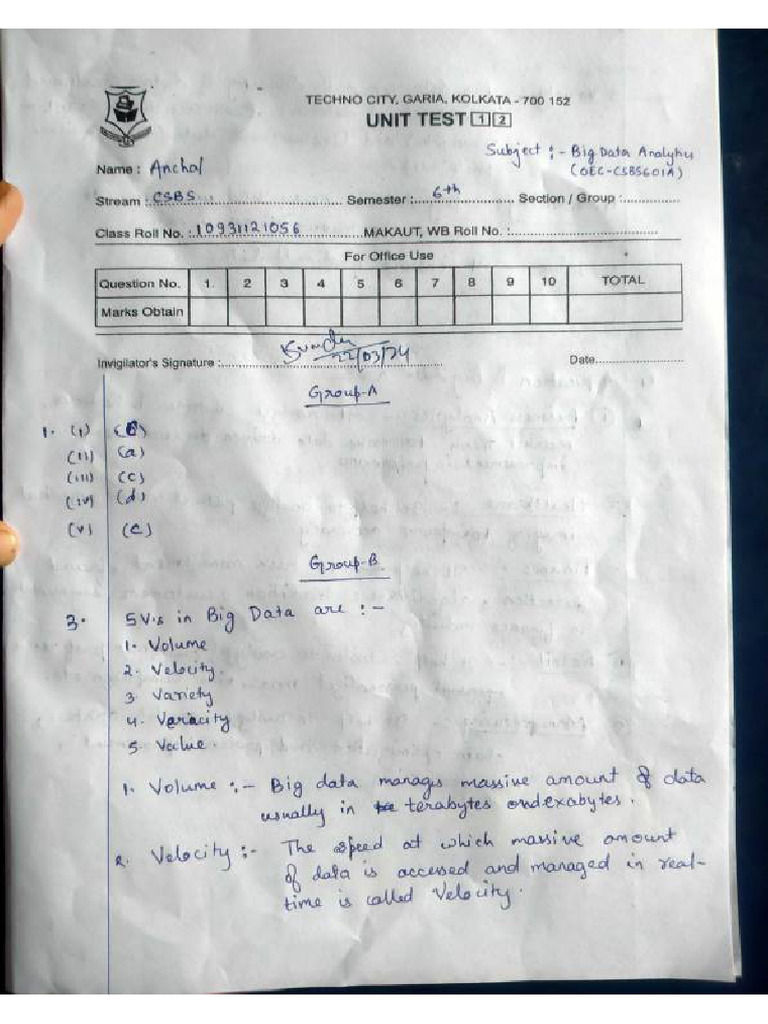 TECHNO CITY, GARIA, KOLKATA - 700 152
UNIT TEST 1 2
Subject :- Big Data Analytics
(OEC-CSBS601A)
Name : Anchal
Stream : CSBS Semester : 6th Section / Group :
Class Roll No. : 10931121056 MAKAUT, WB Roll No. :
For Office Use
Question No. 1. 2 3 4 5 6 7 8 9 10 TOTAL
Marks Obtain
Invigilator's Signature : 22/03/24 Date
Group-A
1. (i) (b)
(ii) (a)
(iii) (c)
(iv) (d)
(v) (c)
Group-B
3. 5V.s in Big Data are :-
1. Volume
2. Velocity.
3. Variety
4. Varacity
5. Value.
1. Volume :- Big data manags massive amount of data
usually in terabytes and exabytes.
2. Velocity :- The speed at which massive amount
of data is accessed and managed in real-
time is called Velocity.